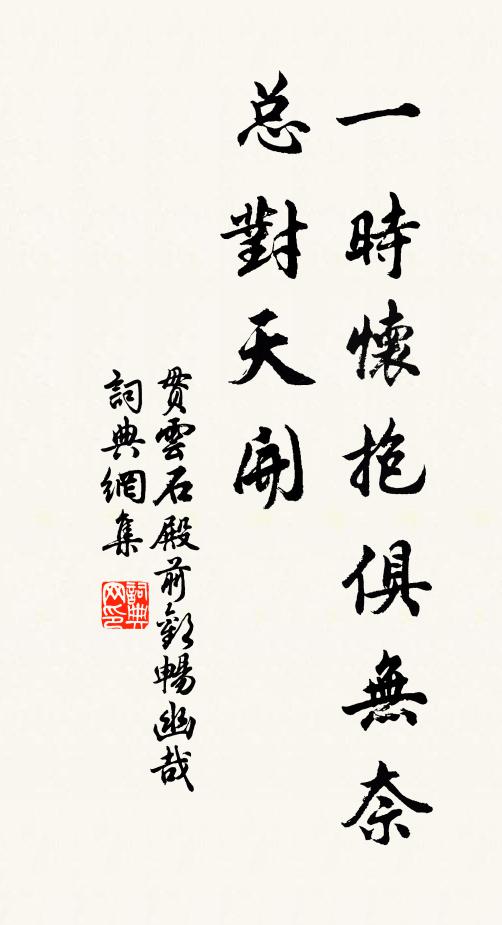 一時懷抱俱無奈
总對天開
貫雲石殿前歡暢幽哉
詞典網集
詞典网印